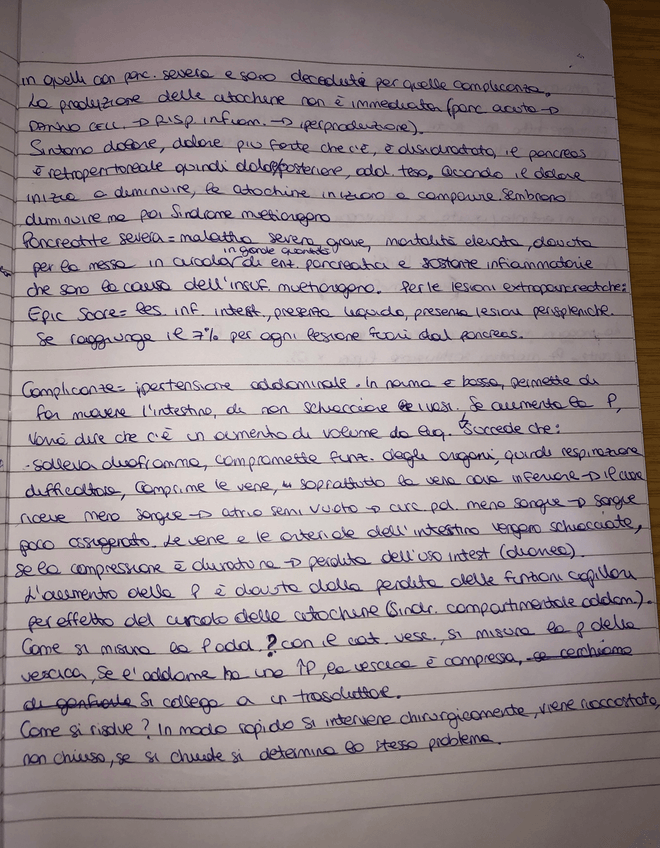 in quelli con panc. severa e sono decedute per quelle complicanze.
La produzione delle citochine non è immediata (panc acuta →
DANNO CELL. → RISP. infiam. → iperproduzione).
Sintomo dolore, dolore più forte che c'è, è disidratato, il pancreas
è retroperitoneale quindi dolore posteriore, add. teso. Quando il dolore
inizia a diminuire, le citochine iniziano a comparire. Sembrano
diminuire ma poi Sindrome multiorgano
Pancreatite severa = malattia severa, grave, mortalità elevata, dovuta
per la messa in circolo in grande quantità di enz. pancreatici e sostanze infiammatorie
che sono la causa dell'insuf. multiorgano. Per le lesioni extrapancreatiche:
Epic Score = les. inf. intest., presenza liquido, presenza lesioni perispleniche.
Se raggiunge il 7% per ogni lesione fuori dal pancreas.
Complicanze = ipertensione addominale. In norma è bassa, permette di
far muovere l'intestino, di non schiacciare i vasi. Se aumenta la P,
vorrà dire che c'è un aumento di volume da liq. Succede che:
- solleva diaframma, compromette funz. degli organi, quindi respirazione
difficoltosa, comprime le vene, soprattutto la vena cava inferiore → il cuore
riceve meno sangue → atrio semi vuoto → circ. pol. meno sangue → sangue
poco ossigenato. Le vene e le arterie dell'intestino vengono schiacciate,
se la compressione è duratura → perdita dell'uso intest (diarrea).
L'aumento della P è dovuta dalla perdita delle funzioni capillari
per effetto del circolo delle citochine (Sindr. compartimentale addom.).
Come si misura la P add? con il cat. vesc. si misura la p della
vescica, se l'addome ha una ↑P, la vescica è compressa, se cerchiamo
di gonfiarla Si collega a un trasduttore.
Come si risolve? In modo rapido si interviene chirurgicamente, viene riaccostato,
non chiuso, se si chiude si determina lo stesso problema.